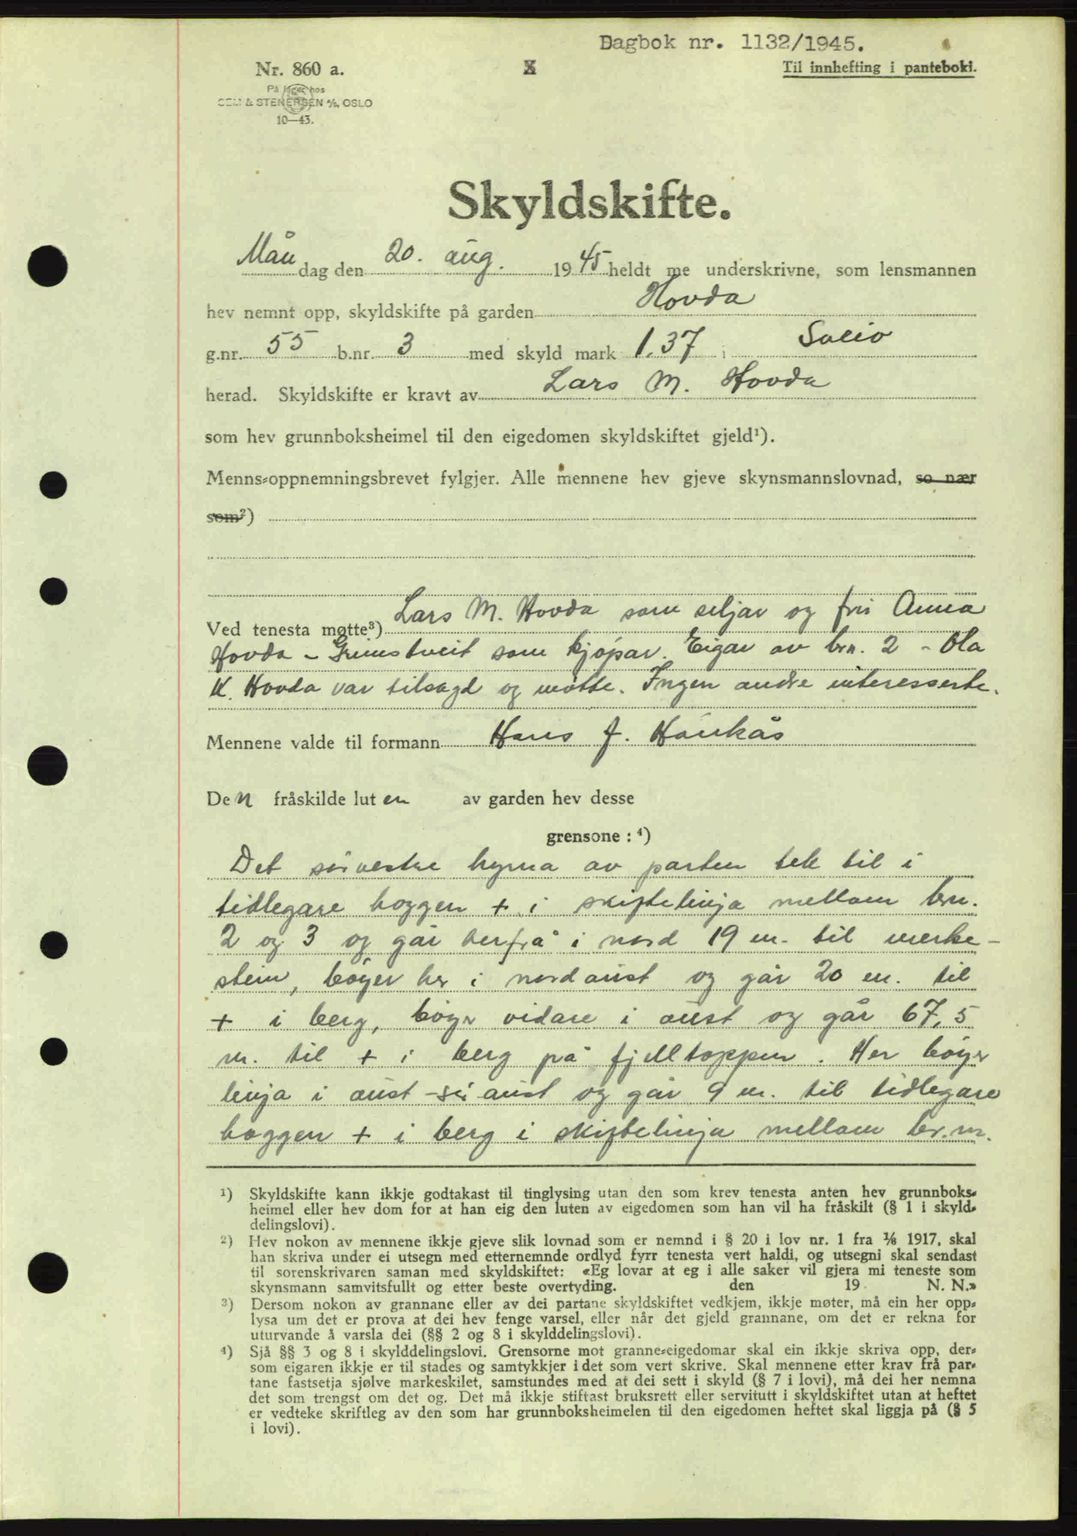 Dagbok nr. 1132/1945.
Nr. 860 a.
X
Til innhefting i panteboki.
På lager hos
SEM & STENERSEN A/S, OSLO
10—43.
Skyldskifte.
Mån dag den 20. aug. 1945 heldt me underskrivne, som lensmannen
hev nemnt opp, skyldskifte på garden Hovda
g.nr. 55 b.nr. 3 med skyld mark 1,37 i
herad. Skyldskifte er kravt av Lars M. Hovda
som hev grunnboksheimel til den eigedomen skyldskiftet gjeld¹).
Menns-oppnemningsbrevet fylgjer. Alle mennene hev gjeve skynsmannslovnad, so nær
som²)
Ved tenesta møtte³) Lars M. Hovda som seljar og frü Anna
Hovda - Grimstveit som kjøpar. Eigar av brn. 2 - Ola
K. Hovda var tilsagd og møtte. Ingen andre interesserte.
Mennene valde til formann Hans J. Haukås
Den fråskilde luten av garden hev desse
grensone : ⁴)
Det sørvestre hyrna av parten tek til i
tidlegare hoggen + i skiftelinja mellom brn.
2 og 3 og går herfrå i nord 19 m. til merke-
stein, bøyer her i nordaust og går 20 m. til
+ i berg, bøyer vidare i aust og går 67,5
m. til + i berg på fjelltoppen. Her bøyer
linja i aust-sør-aust og går 9 m. til tidlegare
hoggen + i berg i skiftelinja mellom br.nr.
¹) Skyldskifte kann ikkje godtakast til tinglysing utan den som krev tenesta anten hev grunnboks-
heimel eller hev dom for at han eig den luten av eigedomen som han vil ha fråskilt (§ 1 i skyld-
delingslovi).
²) Hev nokon av mennene ikkje gjeve slik lovnad som er nemnd i § 20 i lov nr. 1 fra ⅙ 1917, skal
han skriva under ei utsegn med etternemnde ordlyd fyrr tenesta vert haldi, og utsegni skal sendast
til sorenskrivaren saman med skyldskiftet: «Eg lovar at eg i alle saker vil gjera mi teneste som
skynsmann samvitsfullt og etter beste overtyding. den 19 N. N.»
³) Dersom nokon av grannane eller av dei partane skyldskiftet vedkjem, ikkje møter, må ein her opp-
lysa um det er prova at dei hev fenge varsel, eller når det gjeld grannane, om det er rekna for
uturvande å varsla dei (§§ 2 og 8 i skylddelingslovi).
⁴) Sjå §§ 3 og 8 i skylddelingslovi. Grensorne mot granne-eigedomar skal ein ikkje skriva opp, der-
som eigaren ikkje er til stades og samtykkjer i det som vert skrive. Skal mennene etter krav frå par-
tane fastsetja sjølve markeskilet, samstundes med at dei sett i skyld (§ 7 i lovi), må dei her nemna
det som trengst om det og. Det må ikkje stiftast bruksrett eller servitutt i skyldskiftet utan at heftet
er vedteke skriftleg av den som har grunnboksheimelen til den eigedomen heftet skal liggja på (§ 5
i lovi).